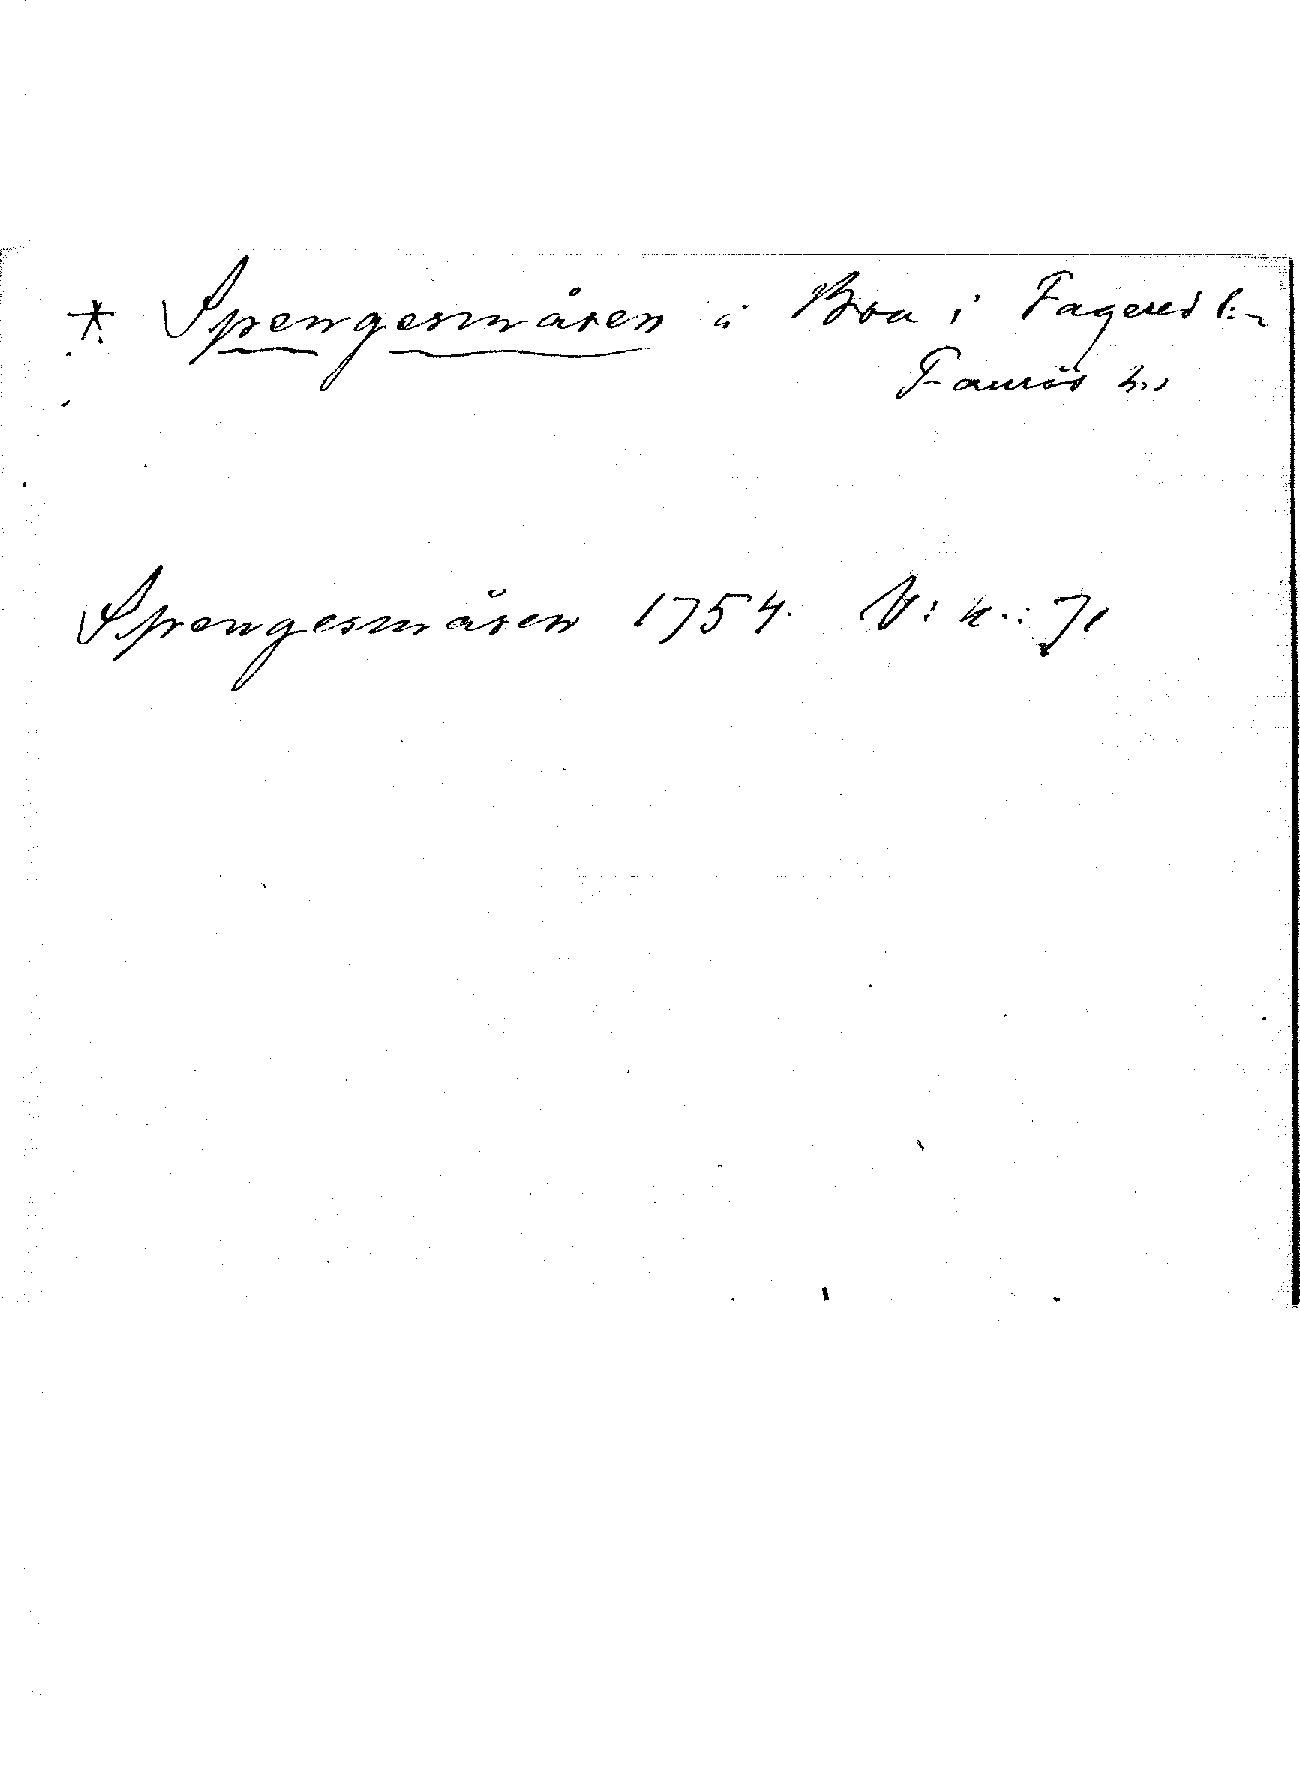 * Spengesmåsen å Bra i Fagered s:n
Faurås h.,
Spengesmåsen 1754. V: n.: 71